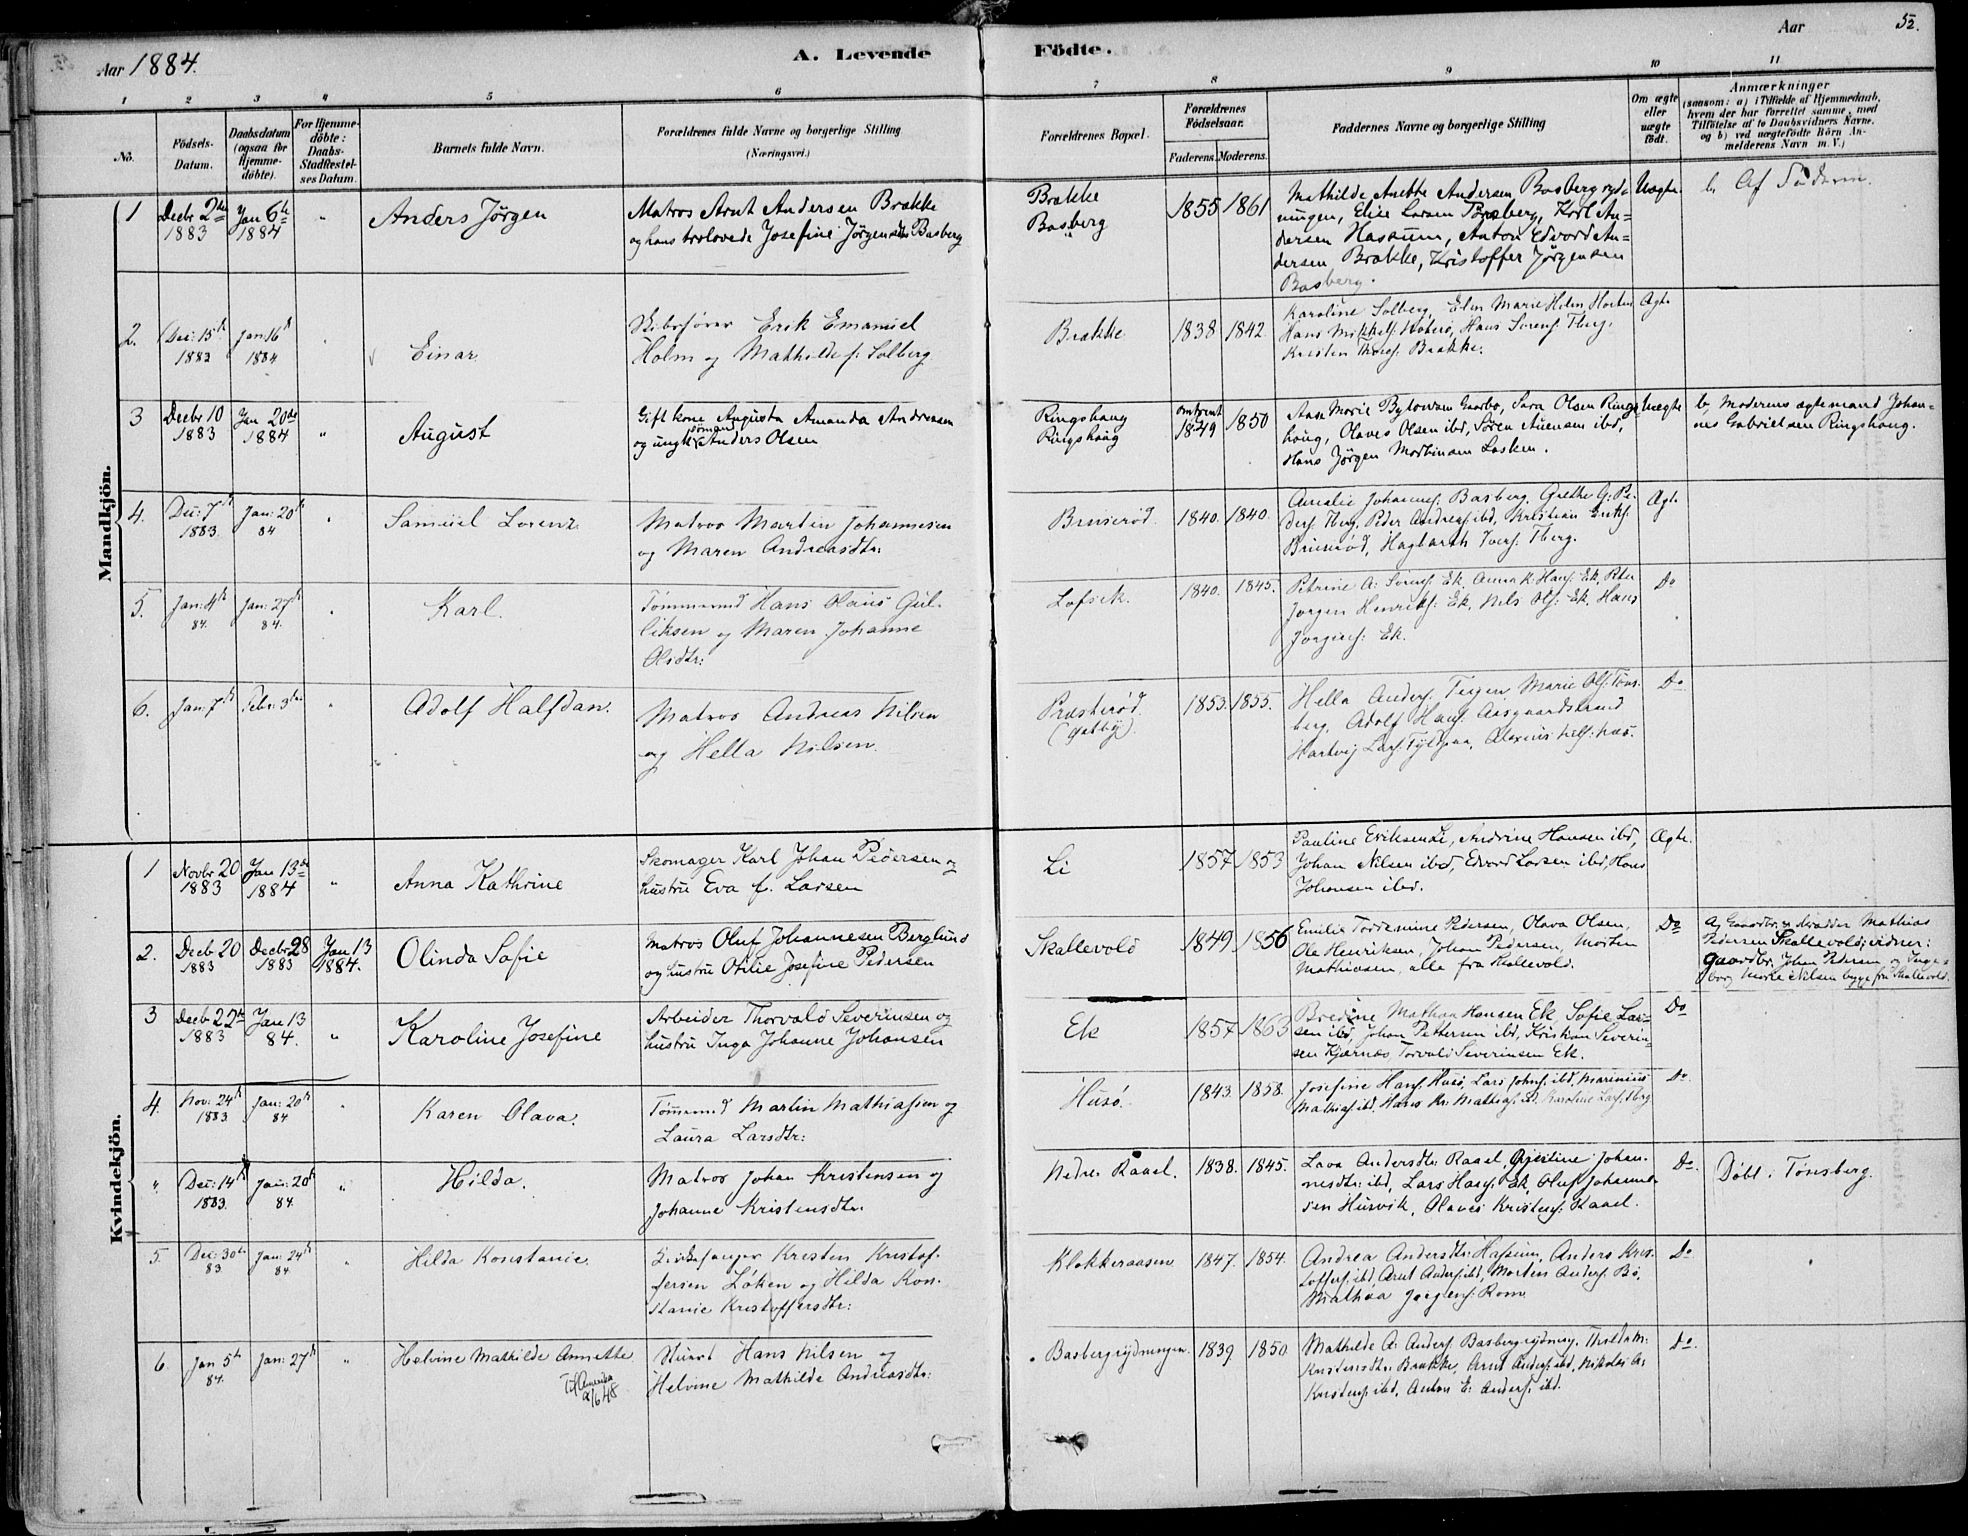 Aar 1884.
A. Levende
Födte.
Aar
52.
1 2 3 4 5 6 7 8 9 10 11
No.
Födsels-
Datum.
Daabsdatum
(ogsaa for
Hjemme-
döbte).
For Hjemme-
döbte:
Daabs-
Stadfestel-
ses Datum.
Barnets fulde Navn.
Forældrenes fulde Navne og borgerlige Stilling
(Næringsvei.)
Forældrenes Bopæl.
Forældrenes
Födselsaar.
Faderens. Moderens.
Faddernes Navne og borgerlige Stilling
Om ægte
eller
uægte
födt.
Anmærkninger
(saasom: a) i Tilfælde af Hjemmedaab,
hvem der har forrettet samme, med
Tilföielse af to Daabsvidners Navne,
og b) ved uægtefödte Börn An-
melderens Navn m. V.)
Mandkjön.
1
Decbr 2den
1883
Jan 6te
1884
"
Anders Jörgen
Matros Arnt Andersen Brække
og hans trolovede Josefine Jörgensdtr Basberg
Brække
Basberg
1855 1861
Mathilde Anette Andersen Basbergrydn-
ningen, Elise Larsen Basberg, Karl An-
dersen Hassum, Anton Edvard An-
dersen Brække, Kristoffer Jörgensen
Basberg.
Uægte
b. Af
2.
Dec: 15de
1883
Jan 16de
1884
Einar
Skibsfører Erik Emanuel
Holm og Mathilde f. Solberg
Brække
1838 1842.
Karoline Solberg, Elen Marie Holm, Horten
Hans Mikkels: , Hans Sørens: Tberg,
Kristen Thores: Brække.
Ægte
3
Decbr 10
1883
Jan 20de
1884
"
August
Gift kone Augusta Amanda Andresen
og ungk sömand Anders Olsen
Ringshaug
Ringshaug
omtrent
1849 1850
Ane Marie Bylowsen Gaarbo, Sara Olsen Rings-
haug, Olaves Olsen ibd, Sören ibd,
Hans Jörgen Mortinsen Lasken.
Uægte
b, Moderens ægtemand Johan-
nes Gabrielsen Ringshaug.
4.
Dec: 7de
1883.
Jan: 20de
84
Samuel Lorenz
Matros Martin Johannesen
og Maren Andreasdtr:
Bruserød.
1840. 1840.
Amalie Johannes: Basberg, Grethe G: Pe-
ders: Tberg, Peder Andreas: ibd, Kristian Eriks:
Bruserød, Hagbarth Ivers: Tberg.
Ægt.
5.
Jan: 4de
84.
Jan: 27de
84.
Karl.
Tømmermd Hans Olaus Gul-
liksen og Maren Johanne
Olsdtr:
Lofsek.
1840. 1845.
Petrine A: Sørens: Ek, Anna K: Hans: Ek, Peter
Jørgen Henriks: Ek, Nils Ols: Ek, Hans
Jørgens: Ek.
Do
6.
Jan: 7de
Febr: 3die
Adolf Halfdan.
Matros Andreas Nilsen
og Hella Nilsen.
Præsterød.
1853. 1855.
Hella Anders: Teigen, Marie Ols: Töns-
berg, Adolf Hans: Aasgaardstrand
Hartvig Lars:
Do
Kvindekjön.
1
Novbr 20
1883
Jan 13de
1884
"
Anna Kathrine
Skomager Karl Johan Pedersen og
hustru Eva f. Larsen
Li
1857 1853
Pauline Eriksen Li, Andrine Hansen ibd,
Johan Nilsen ibd, Edvard Larsen ibd, Hans
Johansen ibd.
Ægte.
2.
Decbr 20
1883
Decbr 28
1883
Jan 13
1884.
Olinda Sofie
Matros Oluf Johannesen Berglund
og hustru Otilie Josefine Pedersen
Skallevold
1849 1856
Emilie Tordemine Pedersen, Olava Olsen,
Ole Henriksen, Johan Pedersen, Morten
Mathiasen, alle fra Skallevold.
Do
a, Gaardbr. og skrædder Mathias
Pedersen Skallevold; vidner:
gaardbr. Johan Pedersen og Inge-
borg Marie Nilsen begge fra Skallevold.
3
Decbr 22de
1883
Jan 13
84.
"
Karoline Josefine
Arbeider Thorvald Severinsen og
hustru Inga Johanne Johansen
Ek
1857 1863
Bredine Mathea Hansen Ek, Sofie Lar-
sen ibd, Johan Pettersen ibd, Kristian Severin-
sen Kjærnæs, Torvald Severinsen Ek.
Do
4.
Nov: 24de
1883
Jan: 20de
84
Karen Olava.
Tømmermd Martin Mathiassen og
Laura Larsdtr:
Husø.
1843. 1858.
Josefine Hans: Husø, Lars Johs: ibd, Marinius
Mathias: ibd, Hans Kr: Mathias: ibd, Karoline Lars: Tberg
Do
"
Dec: 14de
1883.
Jan: 20de
84.
"
Hilda.
Matros Johan Kristensen og
Johanne Kristensdtr.
Nedre Raael.
1838. 1845.
Lava Andersdtr: Raael, Johan-
nesdtr: ibd, Lars Hans: Ek, Oluf Johanne-
sen Husvik, Olaves Kristens: Raael.
Do
Døbt i Tønsberg.
5.
Dec: 30te
83
Jan: 24de
84.
"
Hilda Konstanie.
Kristen Kristof-
fersen Löken og Hilda Kon-
stanie Kristoffersdtr:
Klokkeraasen
1847. 1854.
Andrea Andersdtr: Hassum, Anders Kris-
toffers: ibd, Arnt Anders: ibd, Morten Anders: Bø,
Mathea Jørgens: Rom.
Do
6.
Jan 5te
84.
Jan: 27de
"
Helvine Mathilde Annette
Til Amerika
8/6 48
Stuert Hans Nilsen og
Helvine Mathilde Andreasdtr:
Basbergrydningen.
1839 1850
Mathilde A: Anders: Basbergrydning,
Kristensdtr: Brække, Arnt Anders: ibd, Nikolai A:
Kristens: ibd, Anton E: Anders: ibd.
Do